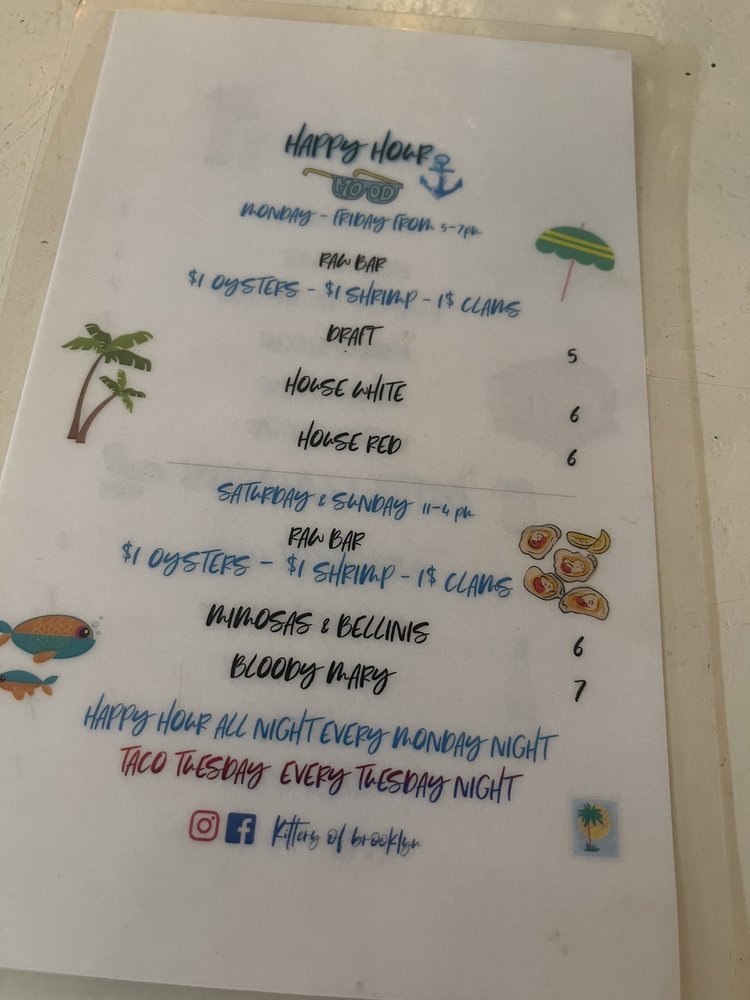 HAPPY HOUR
MOOD
MONDAY - FRIDAY FROM 5-7PM
RAW BAR
$1 OYSTERS - $1 SHRIMP - 1$ CLAMS
DRAFT 5
HOUSE WHITE 6
HOUSE RED 6
SATURDAY & SUNDAY 11-4 PM
RAW BAR
$1 OYSTERS - $1 SHRIMP - 1$ CLAMS
MIMOSAS & BELLINIS 6
BLOODY MARY 7
HAPPY HOUR ALL NIGHT EVERY MONDAY NIGHT
TACO TUESDAY EVERY TUESDAY NIGHT
Kittery of brooklyn